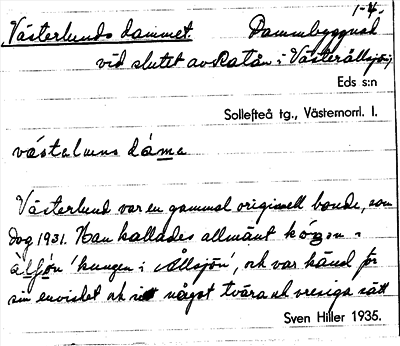 1-4.
Västerlunds dammet. Dammbyggnad
vid slutet av Ratån i Västerållsjön,
Eds s:n
Sollefteå tg., Västernorrl. l.
västaluns dáma
Västerlund var en gammal originell bonde, som
dog 1931. Han kallades allmänt
'kungen i Allsjön', och var känd för
sin envishet och något tvära och vresiga sätt
Sven Hiller 1935.